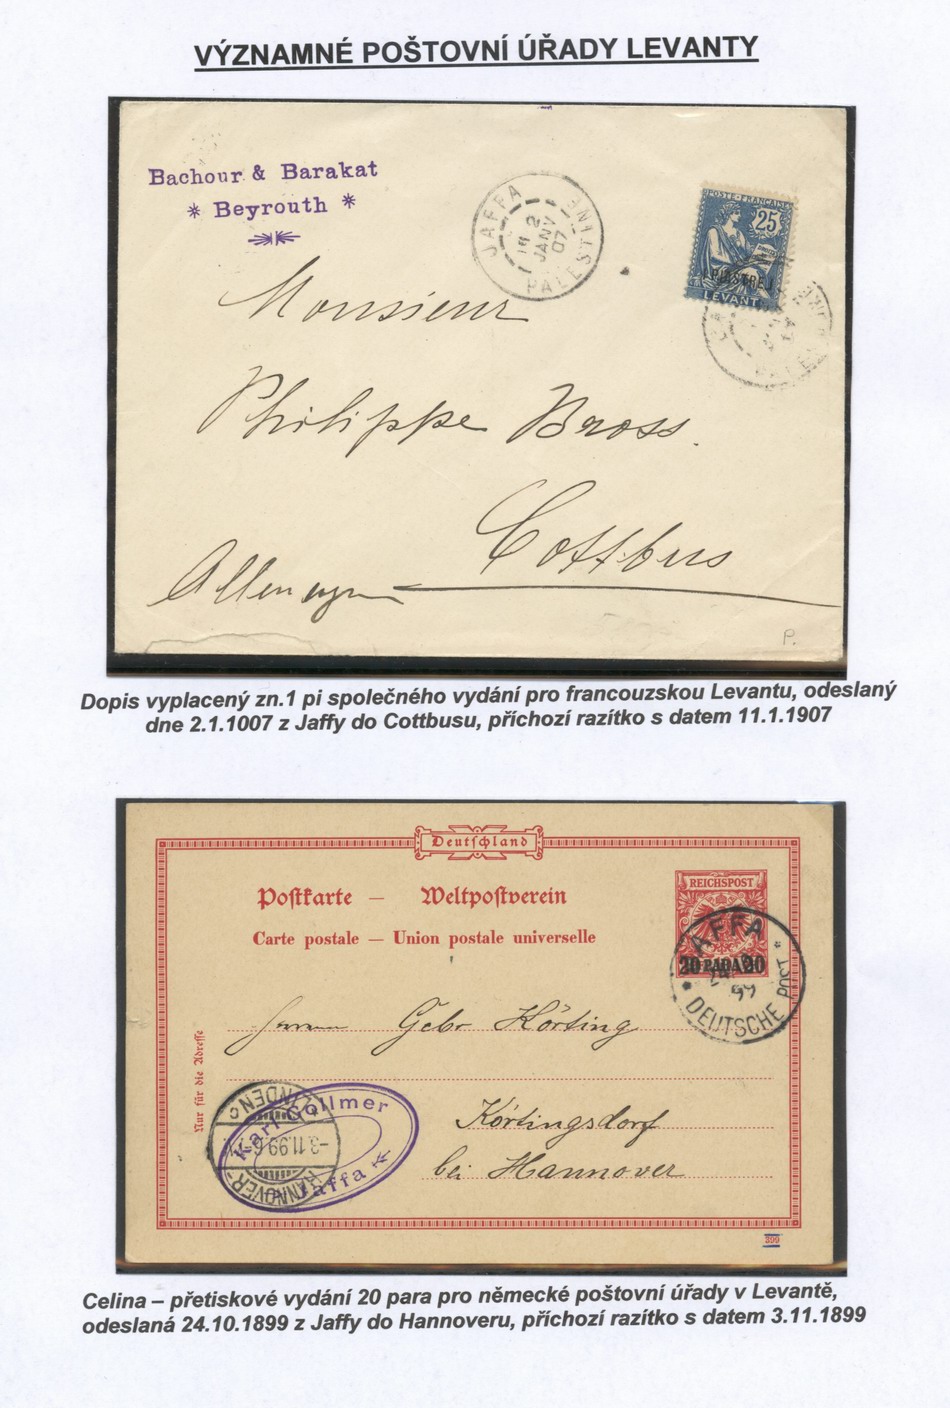 VÝZNAMNÉ POŠTOVNÍ ÚŘADY LEVANTY
Bachour & Barakat
* Beyrouth *
JAFFA
2
JANV
07
PALESTINE
POSTE FRANÇAISE
25
1 PIASTRE 1
LEVANT
Monsieur
Philippe Bross.
Cottbus
Allemagne
P.
Dopis vyplacený zn.1 pi společného vydání pro francouzskou Levantu, odeslaný
dne 2.1.1007 z Jaffy do Cottbusu, příchozí razítko s datem 11.1.1907
Deutschland
Postkarte — Weltpostverein
Carte postale — Union postale universelle
REICHSPOST
20 PARA 20
JAFFA
99
* DEUTSCHE POST *
Herrn Gebr Körting
Nur für die Adresse
Körtingsdorf
bei Hannover
LINDEN
-3.11.99.6
HANNOVER-
Karl Gollmer
Jaffa
399
Celina – přetiskové vydání 20 para pro německé poštovní úřady v Levantě,
odeslaná 24.10.1899 z Jaffy do Hannoveru, příchozí razítko s datem 3.11.1899